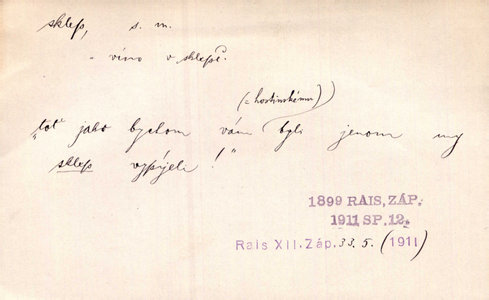 sklep, s. m.
- víno v sklepě.
(= hostinskému)
„toť jako bychom vám byli jenom my
sklep vypíjeli!“
1899 RAIS, ZÁP.
1911 SP. 12.
Rais XII. Záp. 33. 5. (1911)